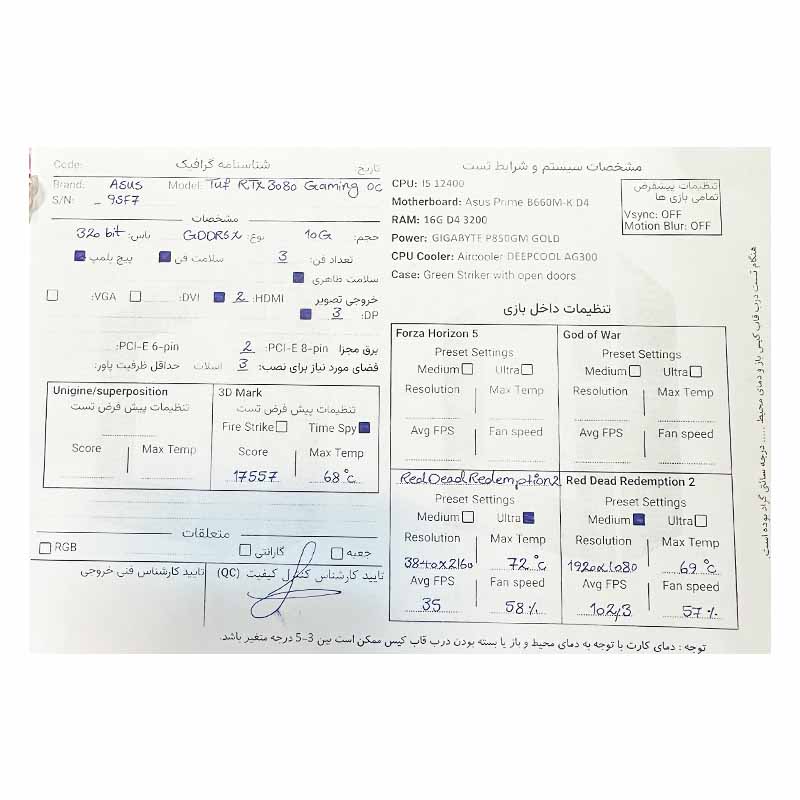 Code:
شناسنامه گرافیک
تاریخ:
Brand: ASUS Model: Tuf RTX 3080 Gaming OC
S/N: _ 95F7
مشخصات
حجم: 10G نوع: GDDR6X باس: 320 bit
تعداد فن: 3 سلامت فن پیچ پلمپ
سلامت ظاهری
خروجی تصویر HDMI: 2 DVI: VGA:
DP: 3
برق مجزا PCI-E 8-pin: 2 PCI-E 6-pin:
فضای مورد نیاز برای نصب: 3 اسلات حداقل ظرفیت پاور:
Unigine/superposition
تنظیمات پیش فرض تست
Score Max Temp
3D Mark
تنظیمات پیش فرض تست
Fire Strike Time Spy
Score Max Temp
17557 68°c
متعلقات
جعبه گارانتی RGB
تایید کارشناس کنترل کیفیت (QC)
تایید کارشناس فنی خروجی
مشخصات سیستم و شرایط تست
CPU: I5 12400
Motherboard: Asus Prime B660M-K D4
RAM: 16G D4 3200
Power: GIGABYTE P850GM GOLD
CPU Cooler: Aircooler DEEPCOOL AG300
Case: Green Striker with open doors
تنظیمات پیشفرض
تمامی بازی ها
Vsync: OFF
Motion Blur: OFF
تنظیمات داخل بازی
Forza Horizon 5
Preset Settings
Medium Ultra
Resolution Max Temp
Avg FPS Fan speed
God of War
Preset Settings
Medium Ultra
Resolution Max Temp
Avg FPS Fan speed
Red Dead Redemption2
Preset Settings
Medium Ultra
Resolution Max Temp
3840x2160 72°c
Avg FPS Fan speed
35 58%
Red Dead Redemption 2
Preset Settings
Medium Ultra
Resolution Max Temp
1920x1080 69°c
Avg FPS Fan speed
102/3 57%
هنگام تست درب قاب کیس باز و دمای محیط ..... درجه سانتی گراد بوده است.
توجه : دمای کارت با توجه به دمای محیط و باز یا بسته بودن درب قاب کیس ممکن است بین 3-5 درجه متغیر باشد.